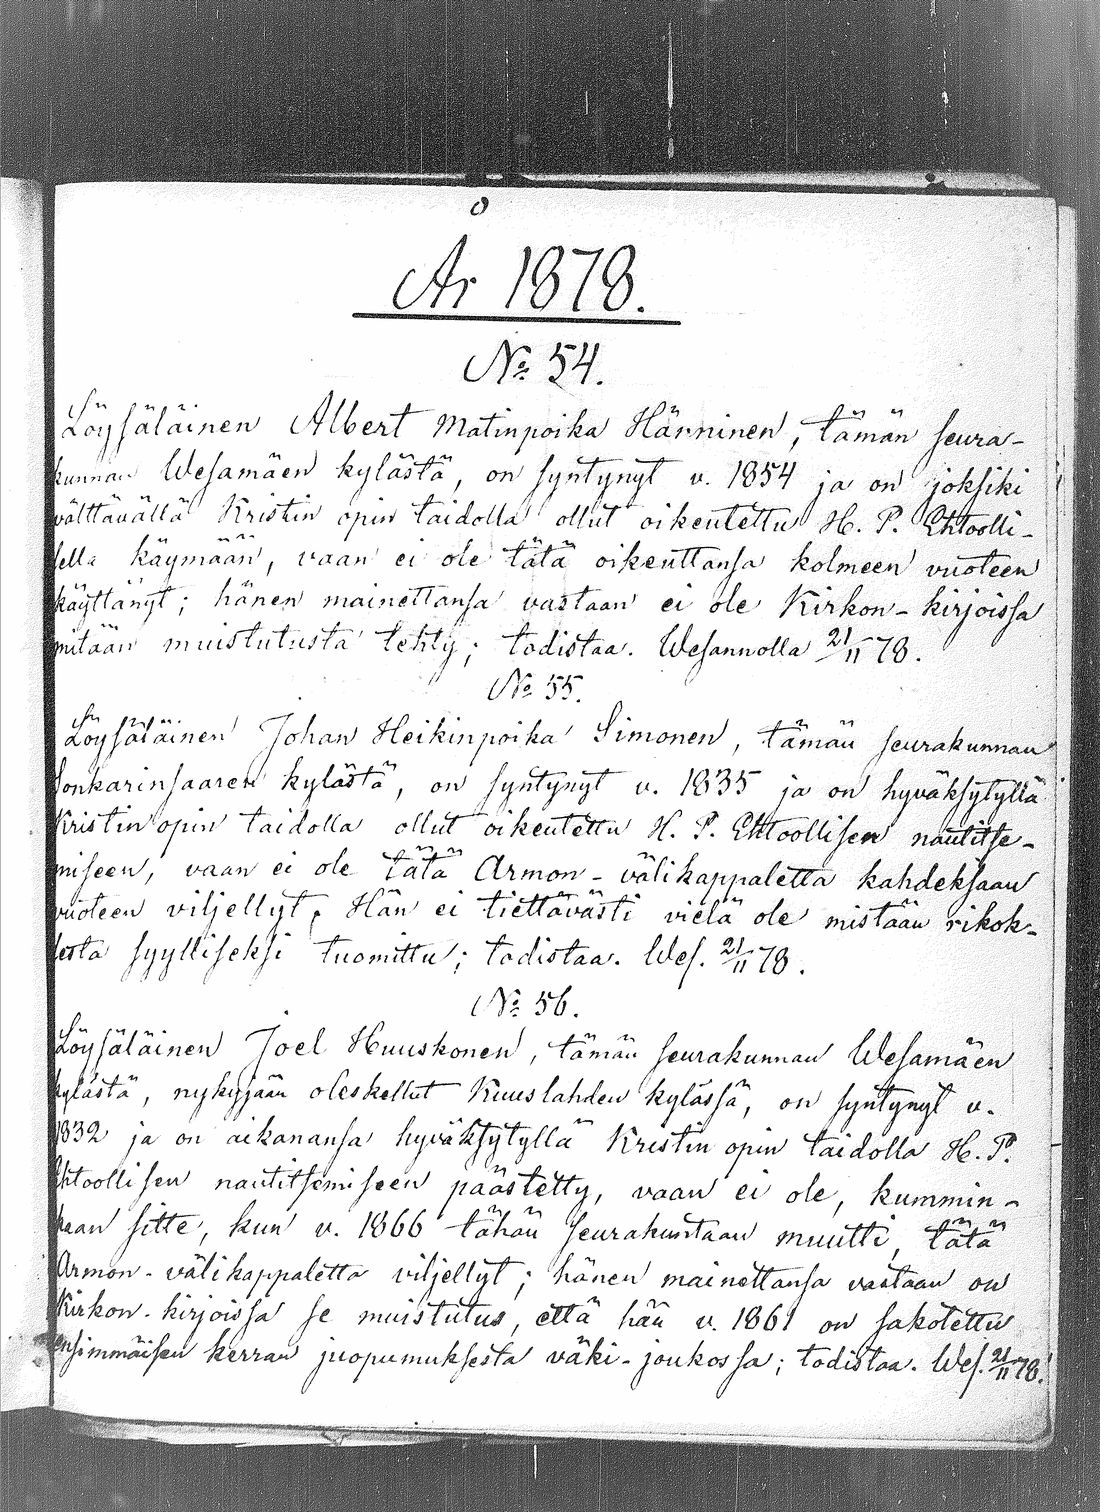 År 1878.
№ 54.
Löysäläinen Albert Matinpoika Hänninen, tämän seura-
kunnan Wesamäen kylästä, on syntynyt v. 1854 ja on joksiki
välttävällä Kristin opin taidolla ollut oikeutettu H. P. Ehtoolli-
sella käymään, vaan ei ole tätä oikeuttansa kolmeen vuoteen
käyttänyt; hänen mainettansa vastaan ei ole Kirkon-kirjoissa
mitään muistutusta tehty; todistaa. Wesannolla 21/11 78.
№ 55.
Löysäläinen Johan Heikinpoika Simonen, tämän seurakunnan
Sonkarinsaaren kylästä, on syntynyt v. 1835 ja on hyväksytyllä
Kristin opin taidolla ollut oikeutettu H. P. Ehtoollisen nautitse-
miseen, vaan ei ole tätä Armon-välikappaletta kahdeksaan
vuoteen viljellyt. Hän ei tiettävästi vielä ole mistään rikok-
sesta syylliseksi tuomittu; todistaa. Wes. 21/11 78.
№ 56.
Löysäläinen Joel Huuskonen, tämän seurakunnan Wesamäen
kylästä, nykyjään oleskellut Kuuslahden kylässä, on syntynyt v.
1832 ja on aikanansa hyväksytyllä Kristin opin taidolla H. P.
Ehtoollisen nautitsemiseen päästetty, vaan ei ole, kummin-
kaan sitte, kun v. 1866 tähän seurakuntaan muutti, tätä
Armon-välikappaletta viljellyt; hänen mainettansa vastaan on
Kirkon-kirjoissa se muistutus, että hän v. 1861 on sakotettu
ensimmäisen kerran juopumuksesta väki-joukossa; todistaa. Wes. 21/11 78.